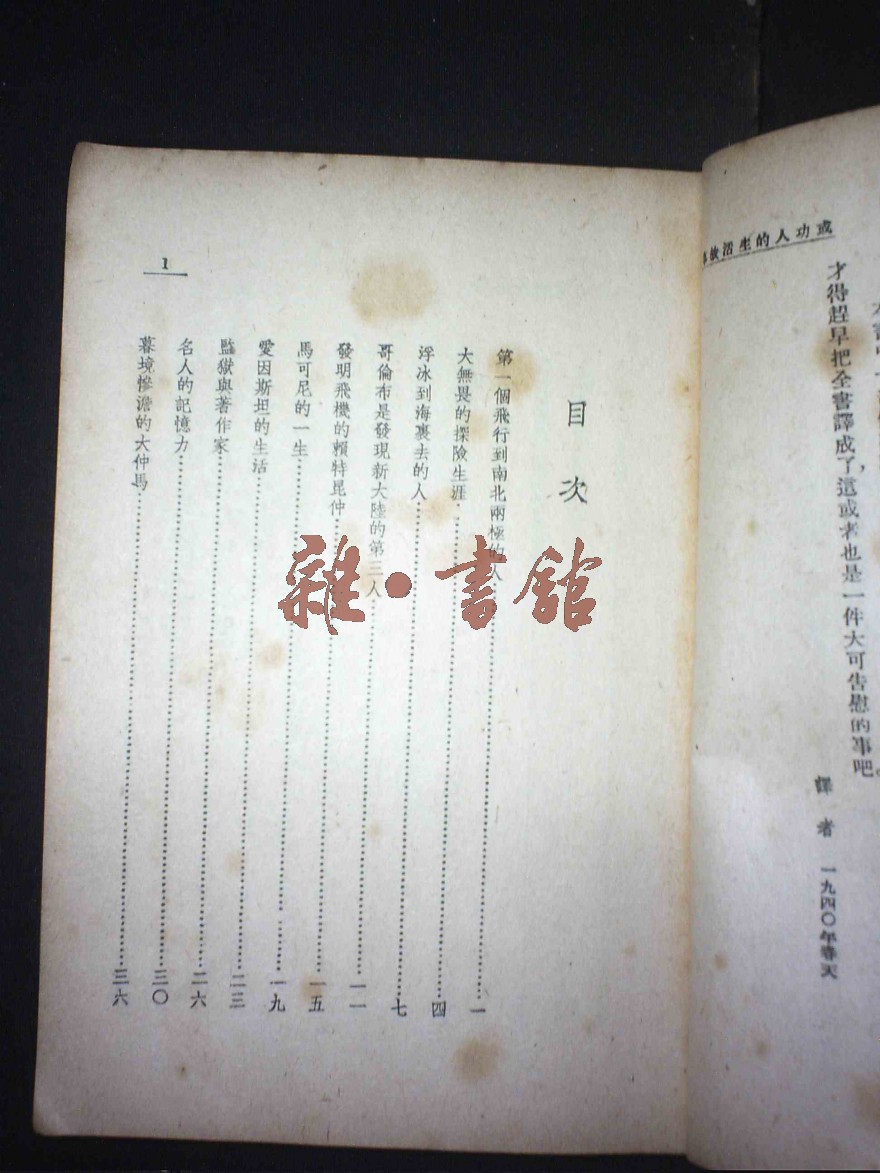 成功人的生活故
才得趕早把全書譯成了,這或者也是一件大可告慰的事吧。
譯者 一九四〇年春天
目次
第一個飛行到南北兩極的人……一
大無畏的探險生涯……四
浮冰到海裏去的人……七
哥倫布是發現新大陸的第三人……一一
發明飛機的賴特昆仲……一五
馬可尼的一生……一九
愛因斯坦的生活……二三
監獄與著作家……二六
名人的記憶力……三〇
暮境慘澹的大仲馬……三六
1
雜·書館